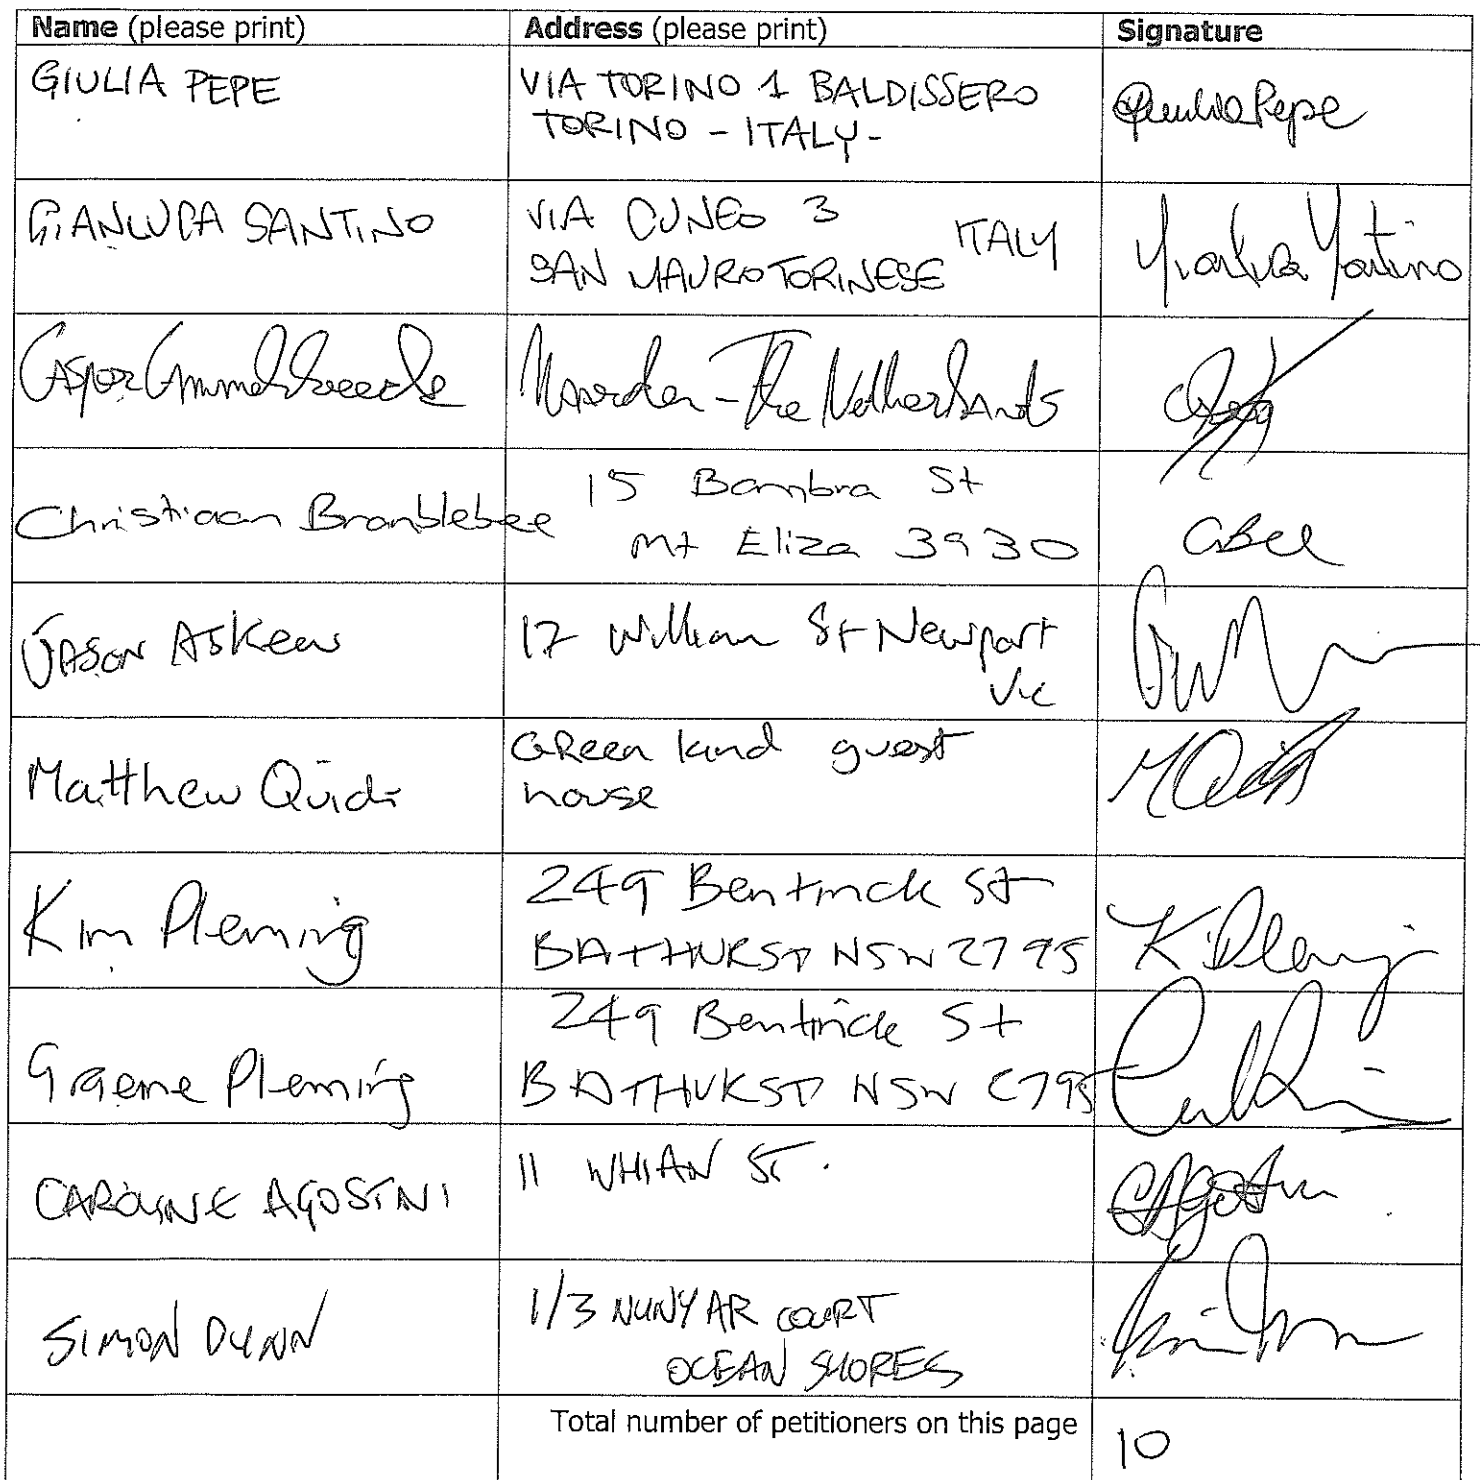 Name (please print) Address (please print) Signature
GIULIA PEPE
VIA TORINO 1 BALDISSERO
TORINO - ITALY-
Giulia Pepe
GIANLUCA SANTINO
VIA CUNEO 3
SAN MAURO TORINESE ITALY
Gianluca Santino
Casper
Naarden - The Netherlands
Christiaan Bramblebee
15 Bambra St
Mt Eliza 3930
CBee
JASON ASKew
17 William St Newport
Vic
Matthew
GReen kind guest
house
Kim Pleming
249 Bentinck St
BATHURST NSW 2795
K Pleming
Graeme Pleming
249 Bentinck St
BATHURST NSW 2795
CAROLINE AGOSTINI
11 WHIAN ST.
CAgostini
SIMON DUNN
1/3 NUNYAR COURT
OCEAN SHORES
Total number of petitioners on this page 10